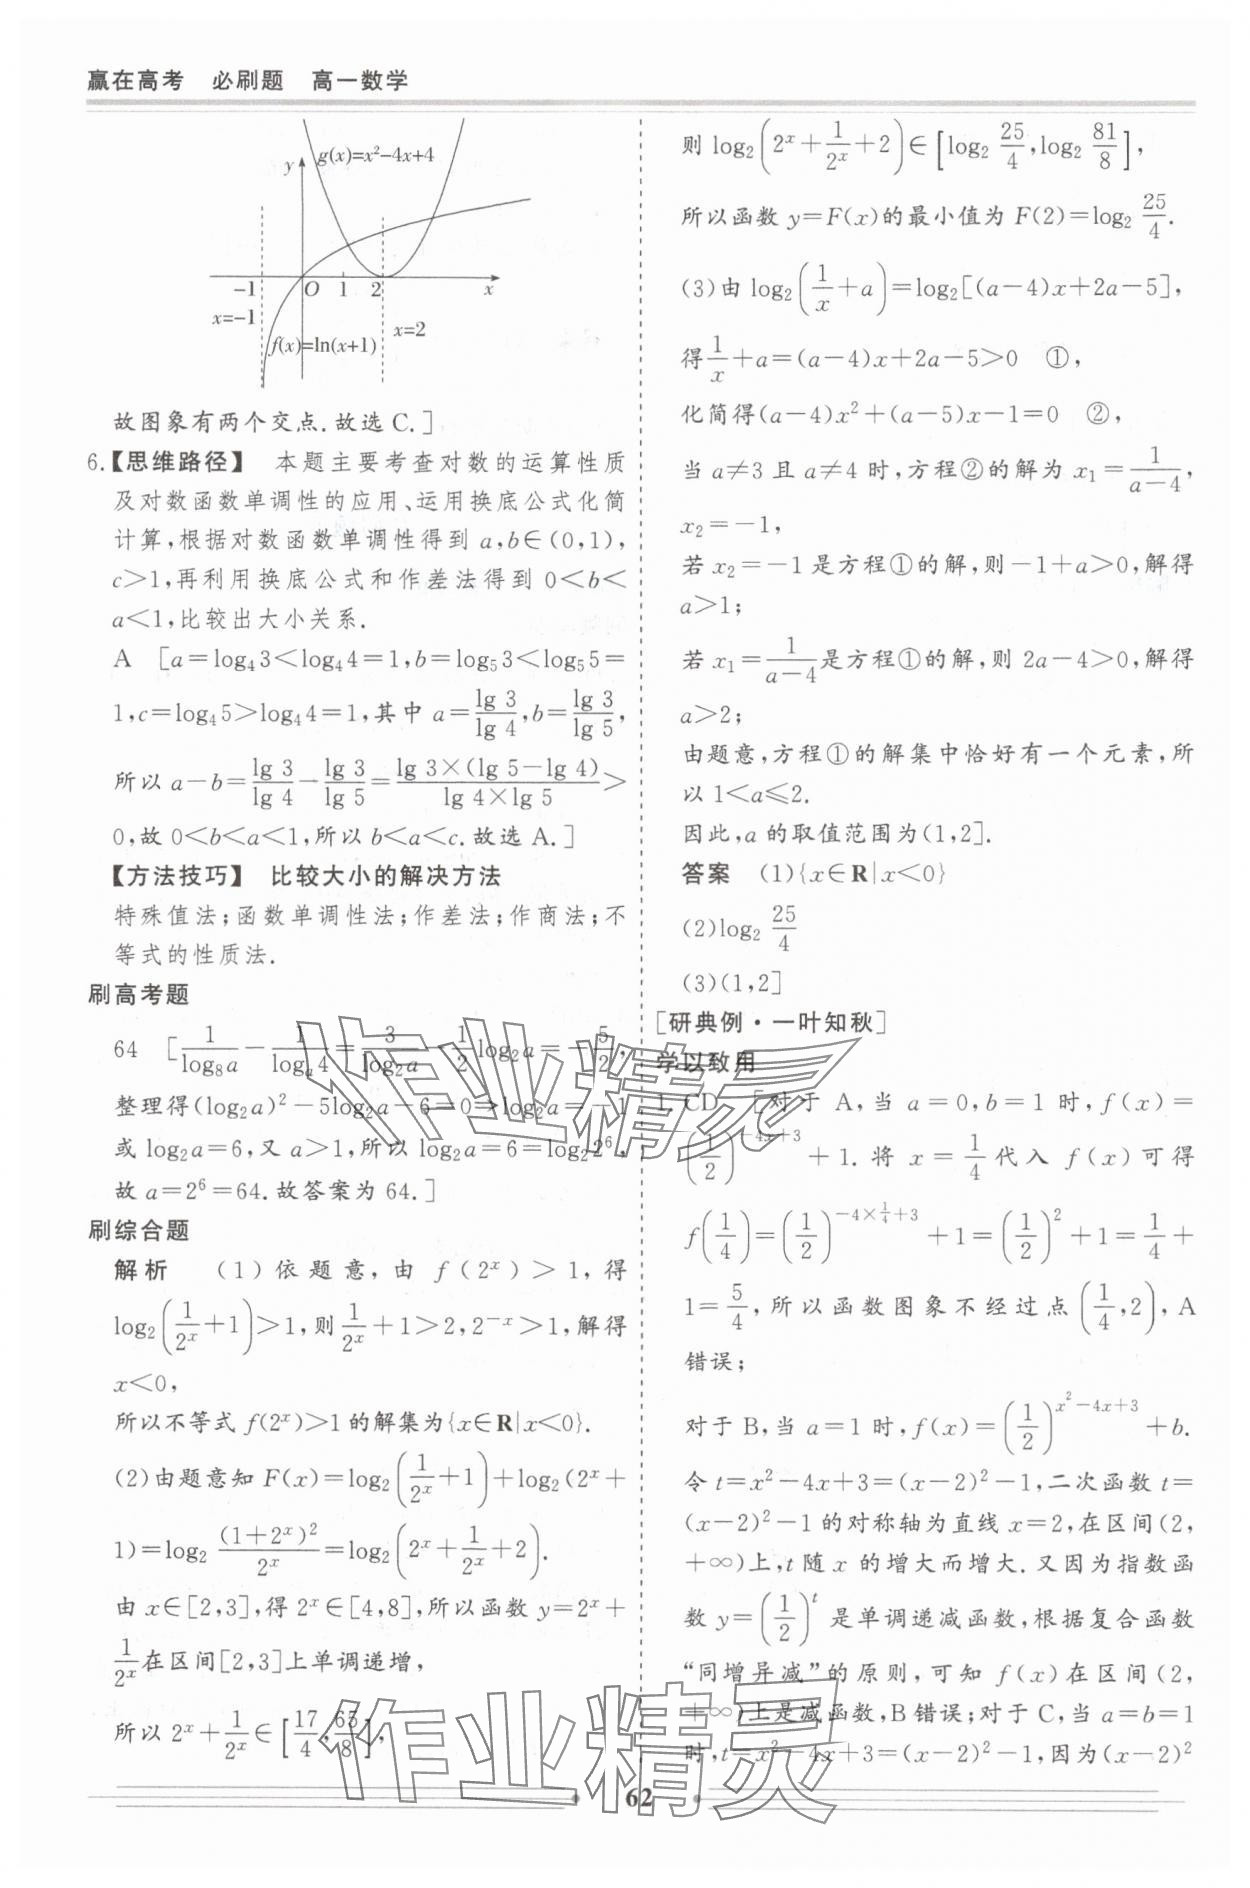 赢在高考 必刷题 高一数学
y
g(x)=x²-4x+4
-1 O 1 2 x
x=-1
x=2
f(x)=ln(x+1)
故图象有两个交点.故选 C.]
6.【思维路径】 本题主要考查对数的运算性质
及对数函数单调性的应用、运用换底公式化简
计算,根据对数函数单调性得到 a,b∈(0,1),
c>1,再利用换底公式和作差法得到 0<b<
a<1,比较出大小关系.
A [a=log₄3<log₄4=1,b=log₅3<log₅5=
1,c=log₄5>log₄4=1,其中 a=lg 3/lg 4,b=lg 3/lg 5,
所以 a-b=lg 3/lg 4-lg 3/lg 5=lg 3×(lg 5-lg 4)/(lg 4×lg 5)>
0,故 0<b<a<1,所以 b<a<c.故选 A.]
【方法技巧】 比较大小的解决方法
特殊值法;函数单调性法;作差法;作商法;不
等式的性质法.
刷高考题
64 [1/log₈a-1/logₐ4=3/log₂a-1/2 log₂a=-5/2,
整理得(log₂a)²-5log₂a-6=0⇒log₂a=-1
或 log₂a=6,又 a>1,所以 log₂a=6=log₂2⁶,
故 a=2⁶=64.故答案为 64.]
刷综合题
解析 (1)依题意,由 f(2ˣ)>1,得
log₂(1/2ˣ+1)>1,则1/2ˣ+1>2,2⁻ˣ>1,解得
x<0,
所以不等式 f(2ˣ)>1 的解集为{x∈R|x<0}.
(2)由题意知 F(x)=log₂(1/2ˣ+1)+log₂(2ˣ+
1)=log₂ (1+2ˣ)²/2ˣ=log₂(2ˣ+1/2ˣ+2).
由 x∈[2,3],得 2ˣ∈[4,8],所以函数 y=2ˣ+
1/2ˣ在区间[2,3]上单调递增,
所以 2ˣ+1/2ˣ∈[17/4,65/8],
则 log₂(2ˣ+1/2ˣ+2)∈[log₂ 25/4,log₂ 81/8],
所以函数 y=F(x)的最小值为 F(2)=log₂ 25/4.
(3)由 log₂(1/x+a)=log₂[(a-4)x+2a-5],
得1/x+a=(a-4)x+2a-5>0 ①,
化简得(a-4)x²+(a-5)x-1=0 ②,
当 a≠3 且 a≠4 时,方程②的解为 x₁=1/(a-4),
x₂=-1,
若 x₂=-1 是方程①的解,则-1+a>0,解得
a>1;
若 x₁=1/(a-4)是方程①的解,则 2a-4>0,解得
a>2;
由题意,方程①的解集中恰好有一个元素,所
以 1<a≤2.
因此,a 的取值范围为(1,2].
答案 (1){x∈R|x<0}
(2)log₂ 25/4
(3)(1,2]
[研典例·一叶知秋]
学以致用
1.CD [对于 A,当 a=0,b=1 时,f(x)=
(1/2)^(-4x+3)+1.将 x=1/4代入 f(x)可得
f(1/4)=(1/2)^(-4×1/4+3)+1=(1/2)²+1=1/4+
1=5/4,所以函数图象不经过点(1/4,2),A
错误;
对于 B,当 a=1 时,f(x)=(1/2)^(x²-4x+3)+b.
令 t=x²-4x+3=(x-2)²-1,二次函数 t=
(x-2)²-1 的对称轴为直线 x=2,在区间(2,
+∞)上,t 随 x 的增大而增大.又因为指数函
数 y=(1/2)ᵗ 是单调递减函数,根据复合函数
“同增异减”的原则,可知 f(x)在区间(2,
+∞)上是减函数,B 错误;对于 C,当 a=b=1
时,t=x²-4x+3=(x-2)²-1,因为(x-2)²
62
作业精灵
作业精灵